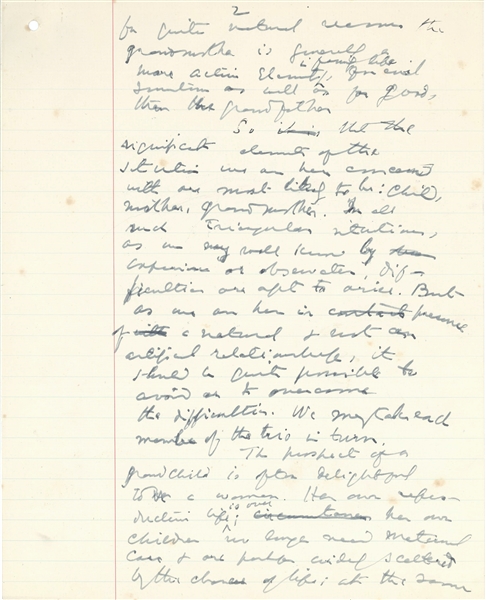 2
for quite natural reasons the
grandmother is generally a
more active element, in family life for evil
sometimes as well as for good,
than the grandfather
So it is that the
significant elements of the
situation we are here concerned
with are most likely to be: Child,
mother, grandmother. In all
such triangular situations,
as we may well know by
experience or observation, dif-
ficulties are apt to arise. But
as we are here in contact presence
of with a natural & not an
artificial relationship, it
should be quite possible to
avoid or to overcome
the difficulties. We may take each
member of the trio in turn.
The prospect of a
grandchild is often delightful
to a woman. Her own repro-
ductive life is over; circumstances her own
children no longer need maternal
care & are perhaps widely scattered
by the chances of life; at the same